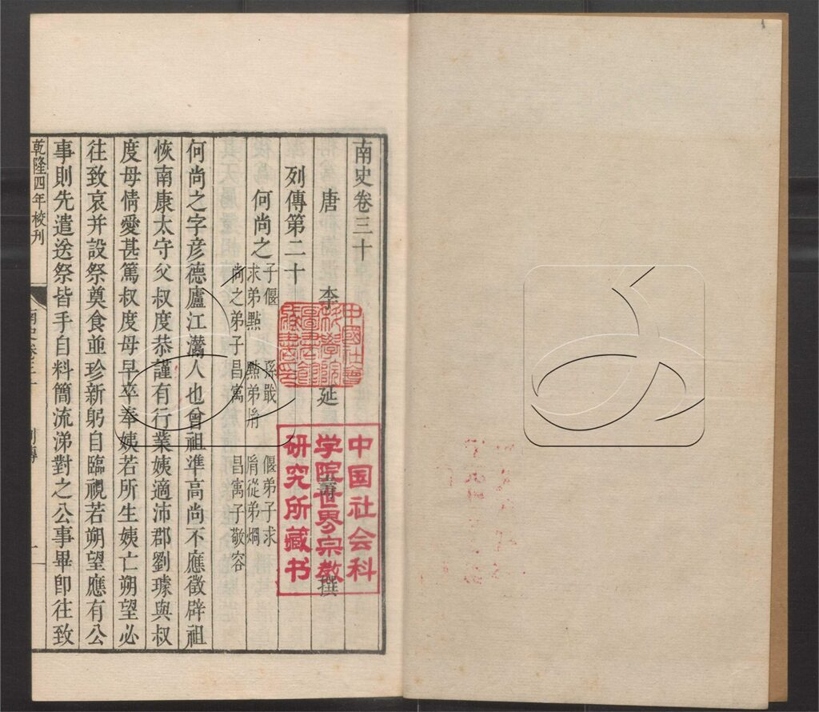 南史卷三十
唐 李延壽撰
列傳第二十
何尚之 子偃 孫戢 偃弟子求
求弟點 點弟胤 胤從弟烱
尚之弟子昌㝢 昌㝢子敬容
何尚之字彥德廬江灊人也曾祖準高尚不應徵辟祖
恢南康太守父叔度恭謹有行業姨適沛郡劉璩與叔
度母情愛甚篤叔度母早卒奉姨若所生姨亡朔望必
往致哀并設祭奠食並珍新躬自臨視若朔望應有公
事則先遣送祭皆手自料簡流涕對之公事畢卽往致
乾隆四年校刊
南史卷三十 列傳
一
中國社會
科學院
圖書館
藏書印
中国社会科
学院世界宗教
研究所藏书